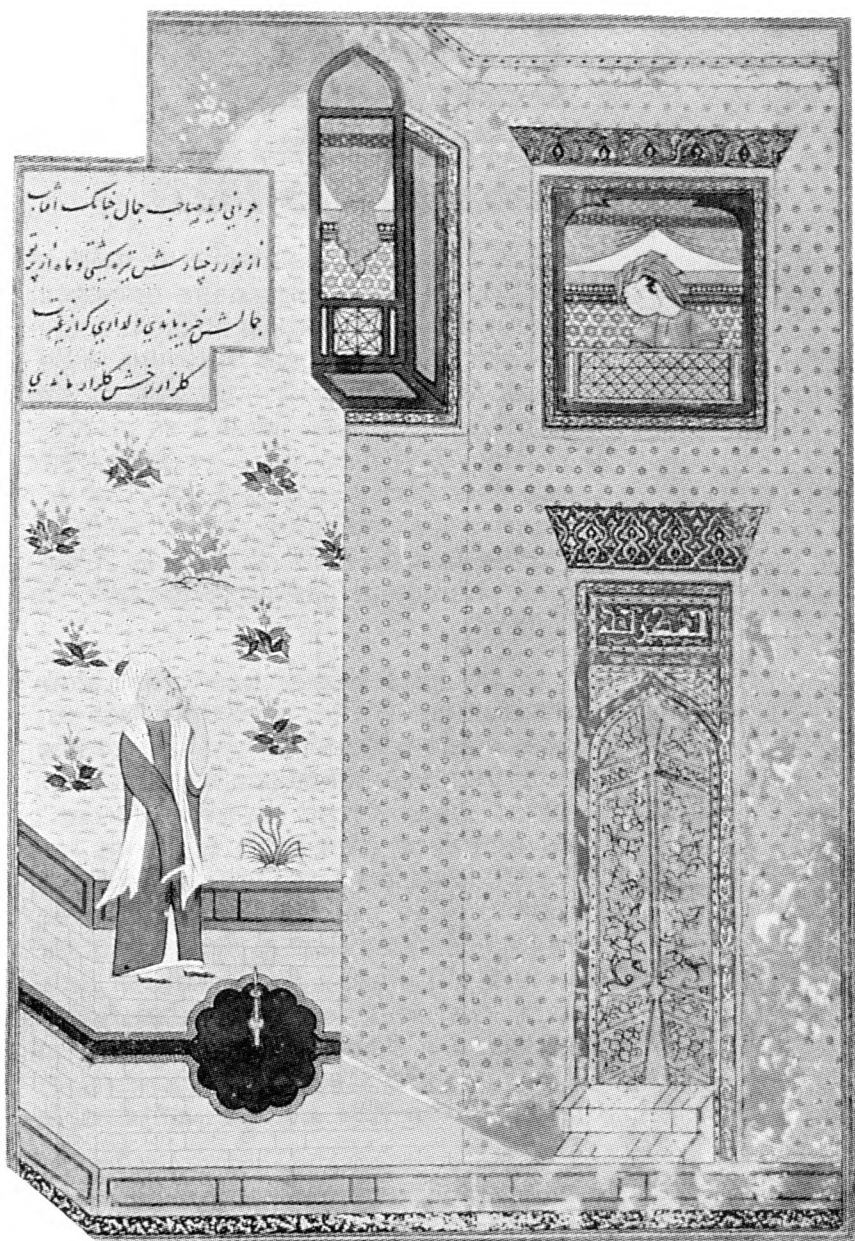 جواني ديد صاحب جمال چنانک آفتاب
از نور رخسارش تيره گشتي و ماه از پرتو
جمالش خيره ماندي و دلداري که از غيرت
گلزار رخش گلزار ماندي